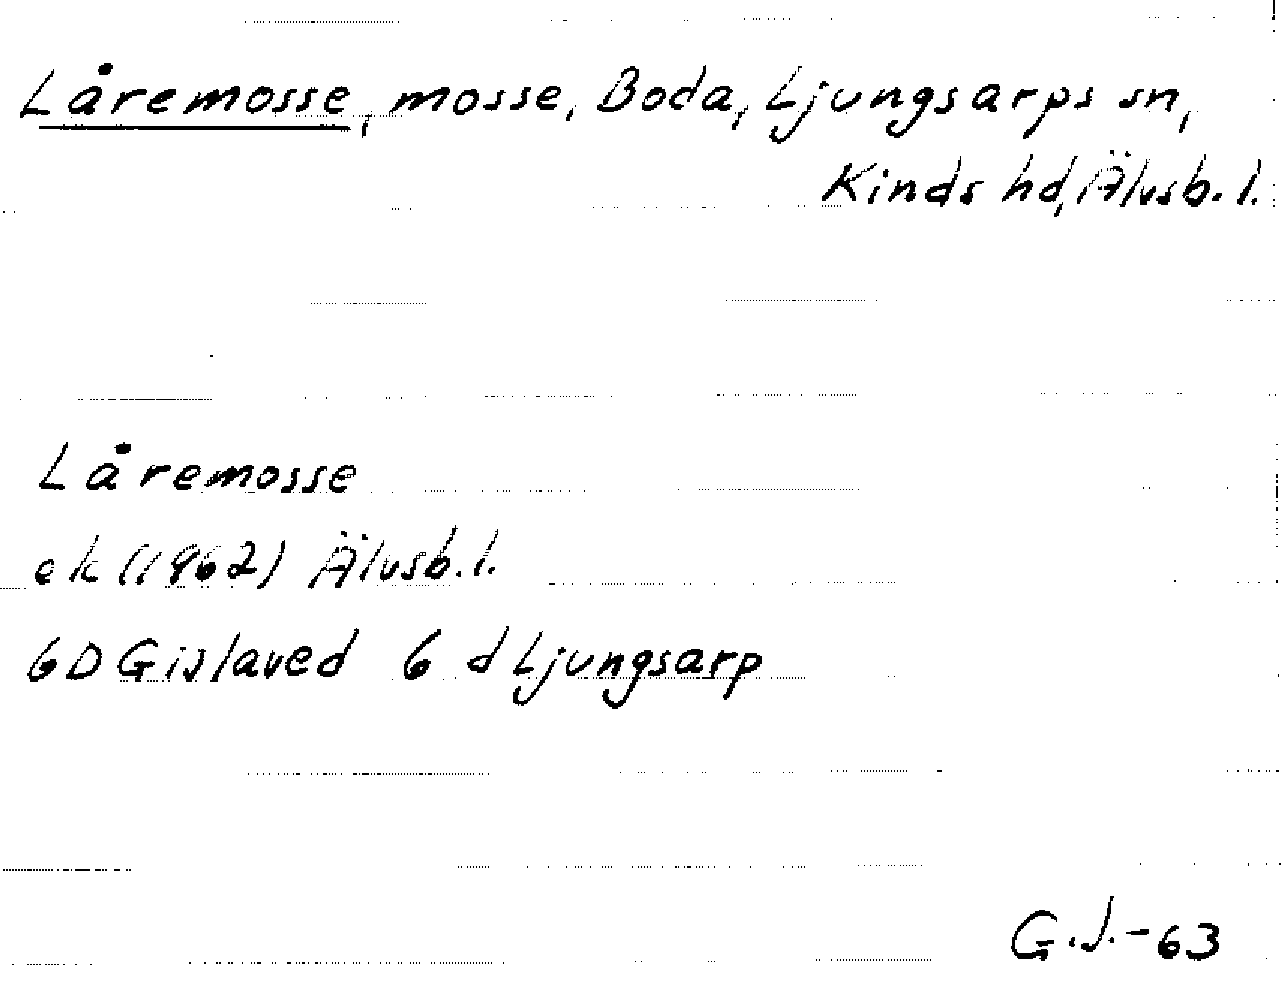 Låremosse, mosse, Boda, Ljungsarps sn,
Kinds hd, Älvsb. l.
Låremosse
ek (1962) Älvsb. l.
6D Gislaved 6 d Ljungsarp
G.J.-63